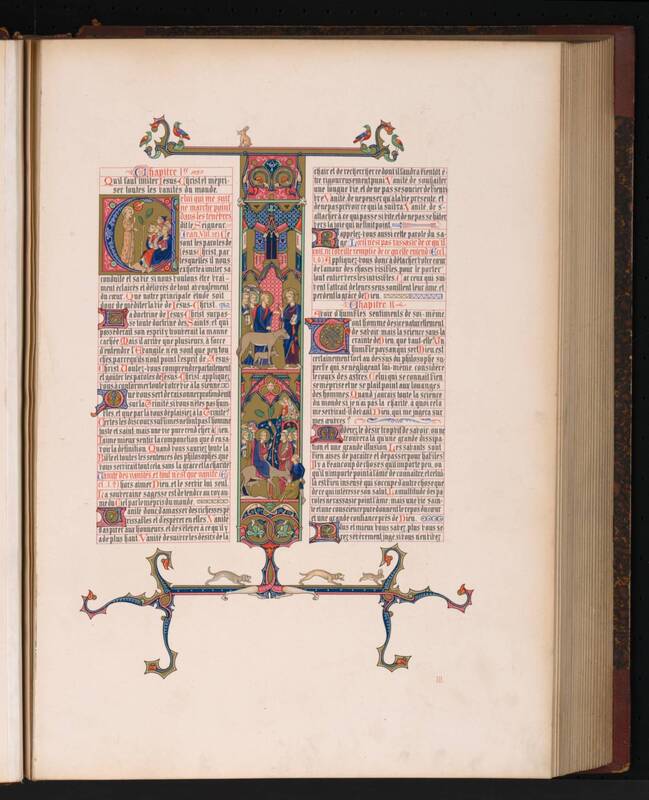 Chapitre Ier
Qu'il faut imiter Jesus-Christ et mépri-
ser toutes les vanités du monde.
Celui qui me suit
ne marche point
dans les tenèbres
dit le Seigneur.
(Jean VIII. 12) Ce
sont les paroles de
Jesus-Christ, par
lesquelles il nous
exhorte à imiter sa
conduite et sa vie si nous voulons être vrai-
ment éclairés et délivrés de tout aveuglement
du cœur. Que notre principale étude soit
donc de méditer la vie de Jesus-Christ.
La doctrine de Jesus-Christ surpas-
se toute doctrine des Saints, et qui
possèderait son esprit y trouverait la manne
cachée. Mais il arrive que plusieurs, à force
d'entendre l'Evangile, n'en sont que peu tou
chés, parcequ'ils n'ont point l'esprit de Jesus-
Christ. Voulez-vous comprendre parfaitement
et goûter les paroles de Jesus-Christ, appliquez
vous à conformer toute votre vie à la sienne.
Que vous sert de raisonner profondement
sur la Trinité, si vous n'êtes pas hum-
ble, et que par là vous déplaisiez à la Trinité?
Certes les discours sublimes ne font pas l'homme
juste et saint, mais une vie pure rend cher à Dieu.
J'aime mieux sentir la componction que d'en sa-
voir la définition. Quand vous sauriez toute la
Bible et toutes les sentences des philosophes, que
vous servirait tout cela, sans la grace et la charité?
Vanité des vanités et tout n'est que vanité (Ec
cl. I. 2) hors aimer Dieu, et le servir lui seul.
La souveraine sagesse est de tendre au royau-
me du Ciel par le mépris du monde.
Vanité donc d'amasser des richesses pe-
rissables et d'espérer en elles. Vanité
d'aspirer aux honneurs, et de s'élever à ce qu'il y
a de plus haut. Vanité de suivre les désirs de la
chair et de rechercher ce dont il faudra bientôt ê-
tre rigoureusement puni. Vanité de souhaiter
une longue vie, et de ne pas se soucier de bien vi
vre. Vanité de ne penser qu'à la vie présente, et
de ne pas prévoir ce qui la suivra. Vanité, de s'-
attacher à ce qui passe si vite et de ne pas se hâter
vers la joie qui ne finit point.
Rappelez-vous aussi cette parole du sa-
ge L'œil n'est pas rassasié de ce qu'il
voit, ni l'oreille remplie de ce qu'elle entend (Eccl.
I. 8) Appliquez-vous donc à détacher votre cœur
de l'amour des choses visibles, pour le porter
tout entier vers les invisibles. Car ceux qui sui-
vent l'attrait de leurs sens souillent leur âme, et
perdent la grâce de Dieu.
Chapitre II
Avoir d'humbles sentiments de soi-même
Tout homme désire naturellement
de savoir mais la science sans la
crainte de Dieu, que vaut-elle. Un
humble paysan qui sert Dieu, est
certainement fort au dessus du philosophe su-
perbe qui, se négligeant lui-même, considère
le cours des astres. Celui qui se connait bien
se méprise et ne se plait point aux louanges
des hommes. Quand j'aurais toute la science
du monde, si je n'ai pas la charité, à quoi cela
me servirait-il devant Dieu, qui me jugera sur
mes œuvres?
Modérez le désir trop vif de savoir, on ne
trouvera là qu'une grande dissipa-
tion et une grande illusion. Les savants sont
bien aises de paraître et de passer pour habiles.
Il y a beaucoup de choses qu'il importe peu, ou
qu'il n'importe point à l'âme de connaître, et celui-là
est fort insensé qui s'occupe d'autre chose que
de ce qui intéresse son salut. La multitude des pa
roles ne rassasie point l'âme mais une vie sain-
te et une conscience pure donnent le repos du cœur
et une grande confiance près de Dieu.
Plus et mieux vous savez, plus vous se-
rez sévèrement jugé, si vous n'en vivez
III.